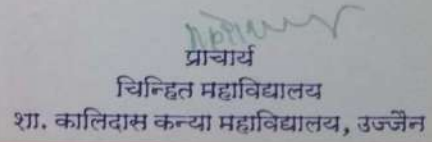 प्राचार्य
चिन्हित महाविद्यालय
शा. कालिदास कन्या महाविद्यालय, उज्जैन